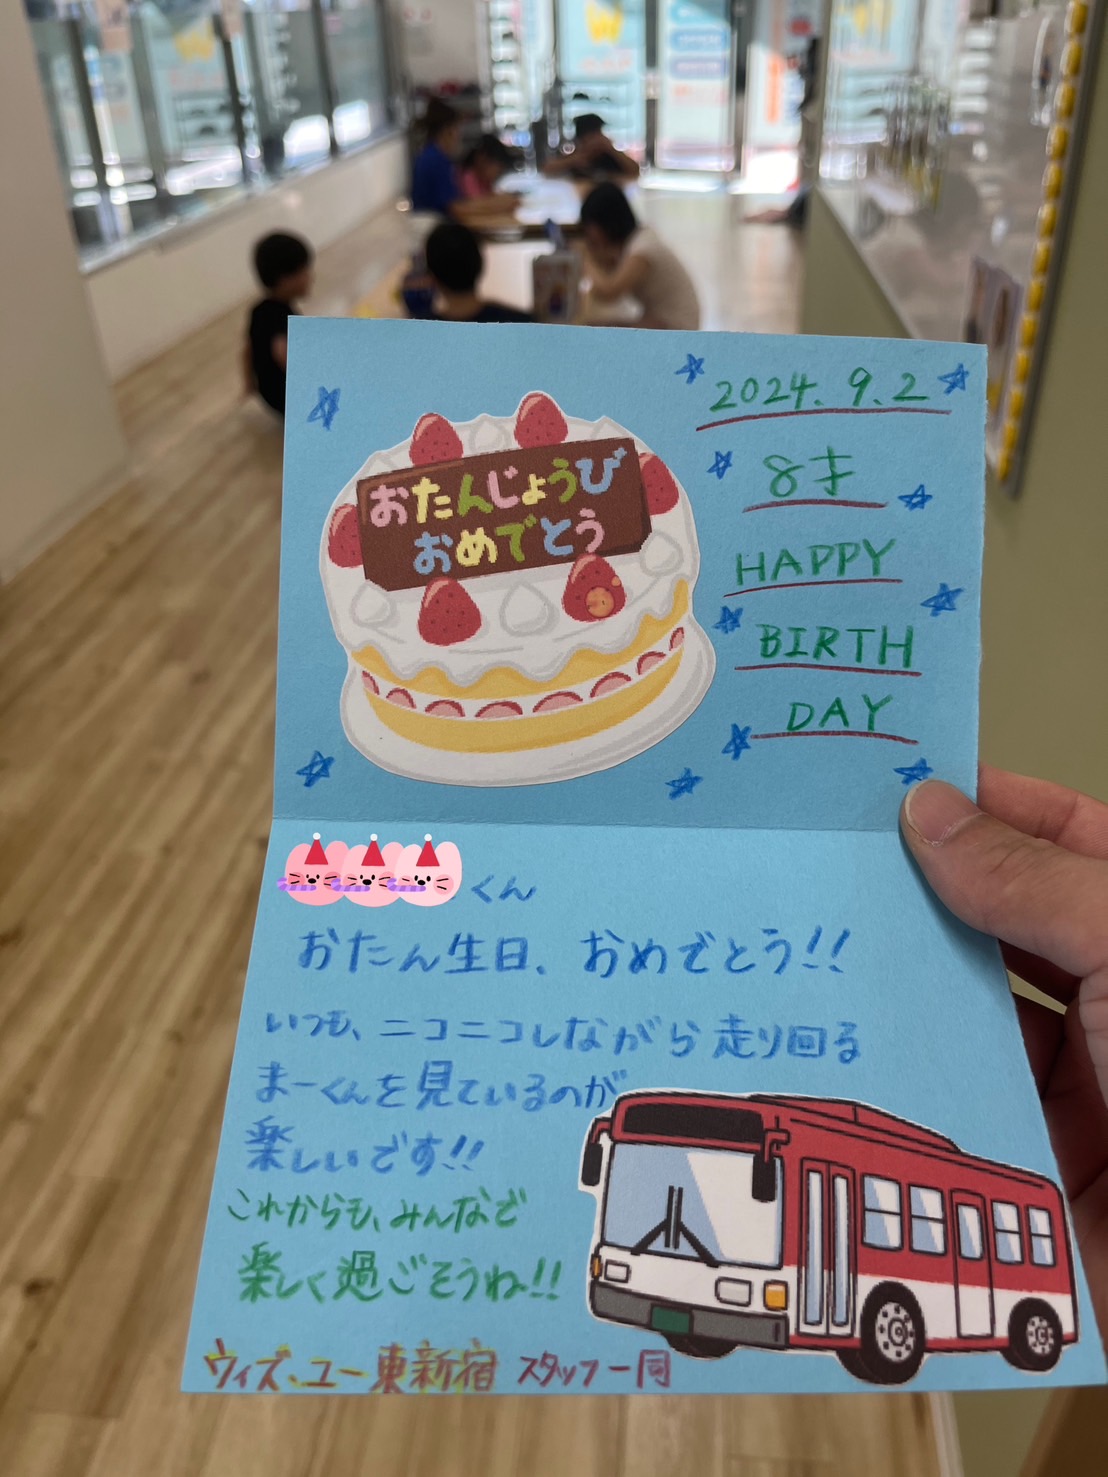 おたんじょうび
おめでとう
2024.9.2
8才
HAPPY
BIRTH
DAY
くん
おたん生日、おめでとう!!
いつも、ニコニコしながら走り回る
まーくんを見ているのが
楽しいです!!
これからも、みんなで
楽しく過ごそうね!!
ウィズ・ユー東新宿 スタッフ一同